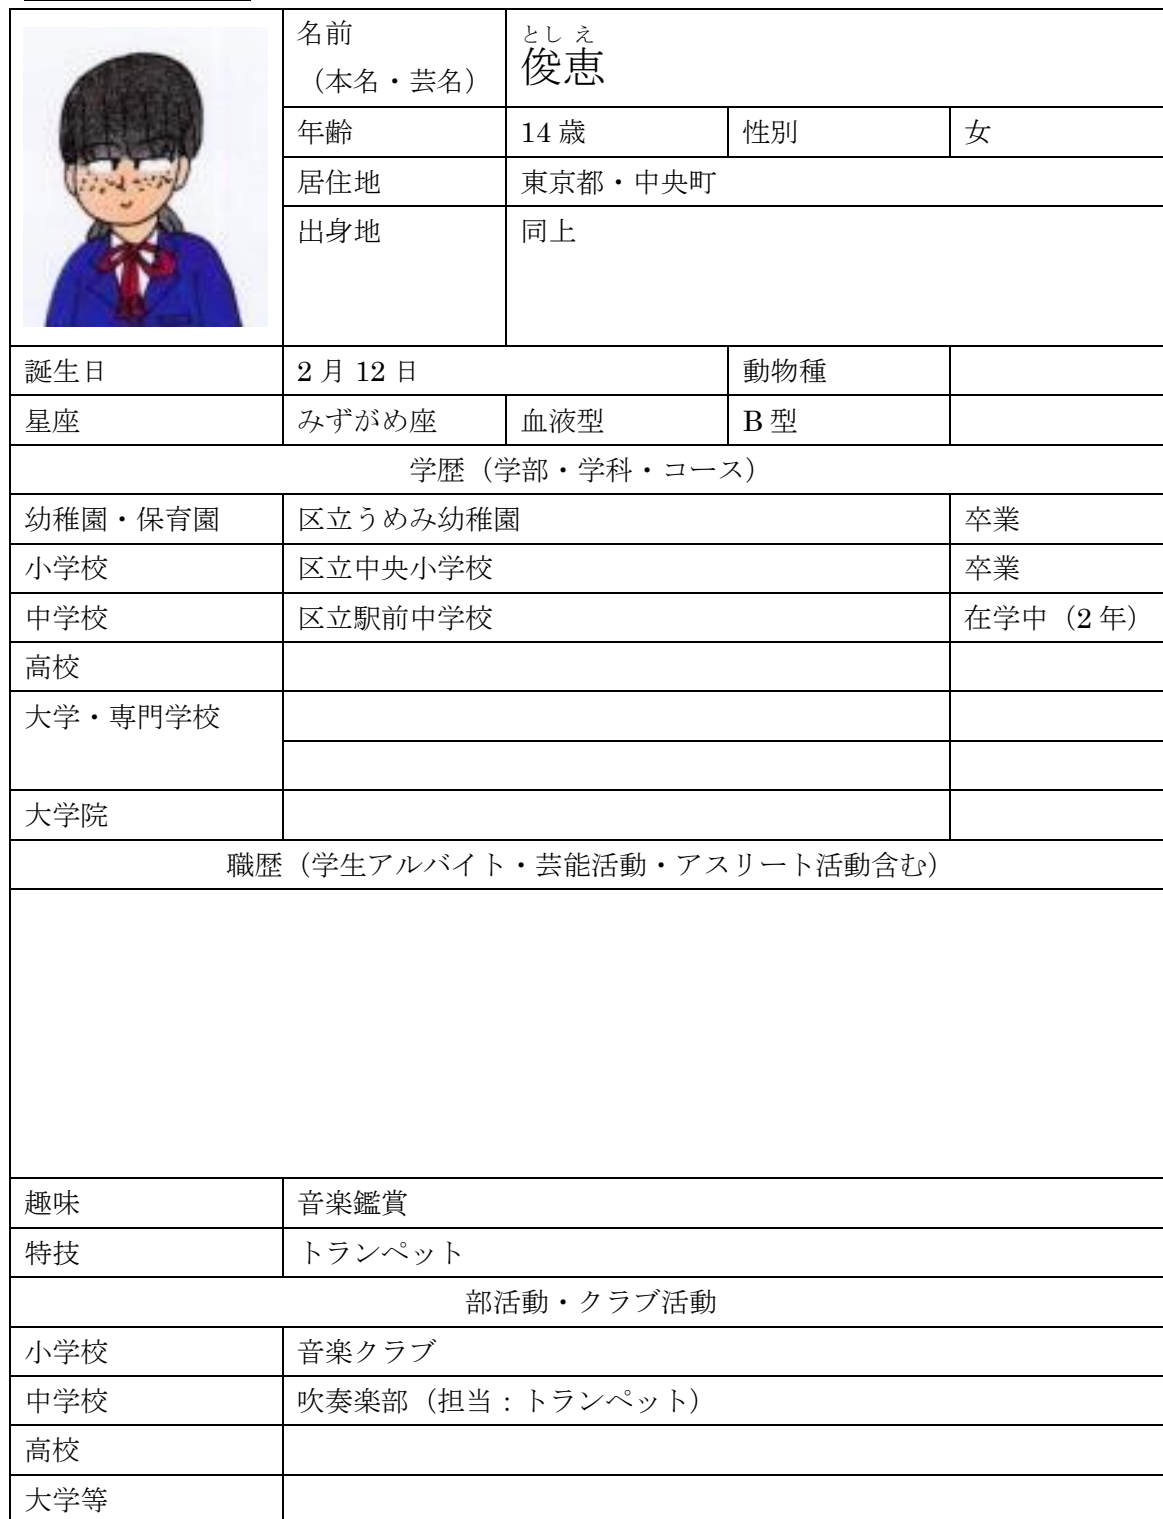 名前
(本名・芸名)
とし え
俊恵
年齢 14歳 性別 女
居住地 東京都・中央町
出身地 同上
誕生日 2月12日 動物種
星座 みずがめ座 血液型 B型
学歴(学部・学科・コース)
幼稚園・保育園 区立うめみ幼稚園 卒業
小学校 区立中央小学校 卒業
中学校 区立駅前中学校 在学中(2年)
高校
大学・専門学校
大学院
職歴(学生アルバイト・芸能活動・アスリート活動含む)
趣味 音楽鑑賞
特技 トランペット
部活動・クラブ活動
小学校 音楽クラブ
中学校 吹奏楽部(担当:トランペット)
高校
大学等